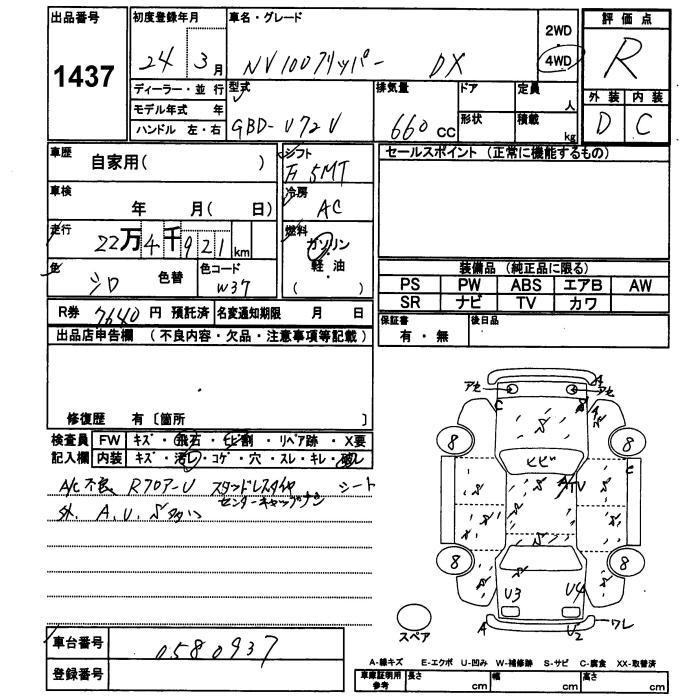 出品番号
1437
初度登録年月
24 3月
車名・グレード
NV100クリッパー DX
2WD
4WD
評価点
R
外装 内装
D C
ディーラー・並 行
モデル年式 年
ハンドル 左・右
型式
GBD-U72V
排気量
660 CC
ドア
形状
定員
人
積載
kg
車歴
自家用( )
車検
年 月( 日)
走行
22万4千921km
色
シロ
色替
色コード
W37
シフト
F 5MT
冷房
AC
燃料
ガソリン
軽 油
( )
セールスポイント (正常に機能するもの)
装備品 (純正品に限る)
PS PW ABS エアB AW
SR ナビ TV カワ
保証書
有・無
後日品
R券 7640 円 預託済 名変通知期限 月 日
出品店申告欄 (不良内容・欠品・注意事項等記載)
修復歴 有〔箇所 〕
検査員 FW キズ・飛石・ヒビ割・リペア跡・X要
記入欄 内装 キズ・汚レ・コゲ・穴・スレ・キレ・破レ
A/C不良 スタッドレスタイヤ シート
センターキャップナシ
外 A.U.S多数
車台番号 0580937
登録番号
アセ アセ
C A
8 8
ヒビ
C
TV
8 8
U3 U4
A U2 ワレ
スペア
A-線キズ E-エクボ U-凹み W-補修跡 S-サビ C-腐食 XX-取替済
車庫証明用
参考
長さ cm 幅 cm 高さ cm